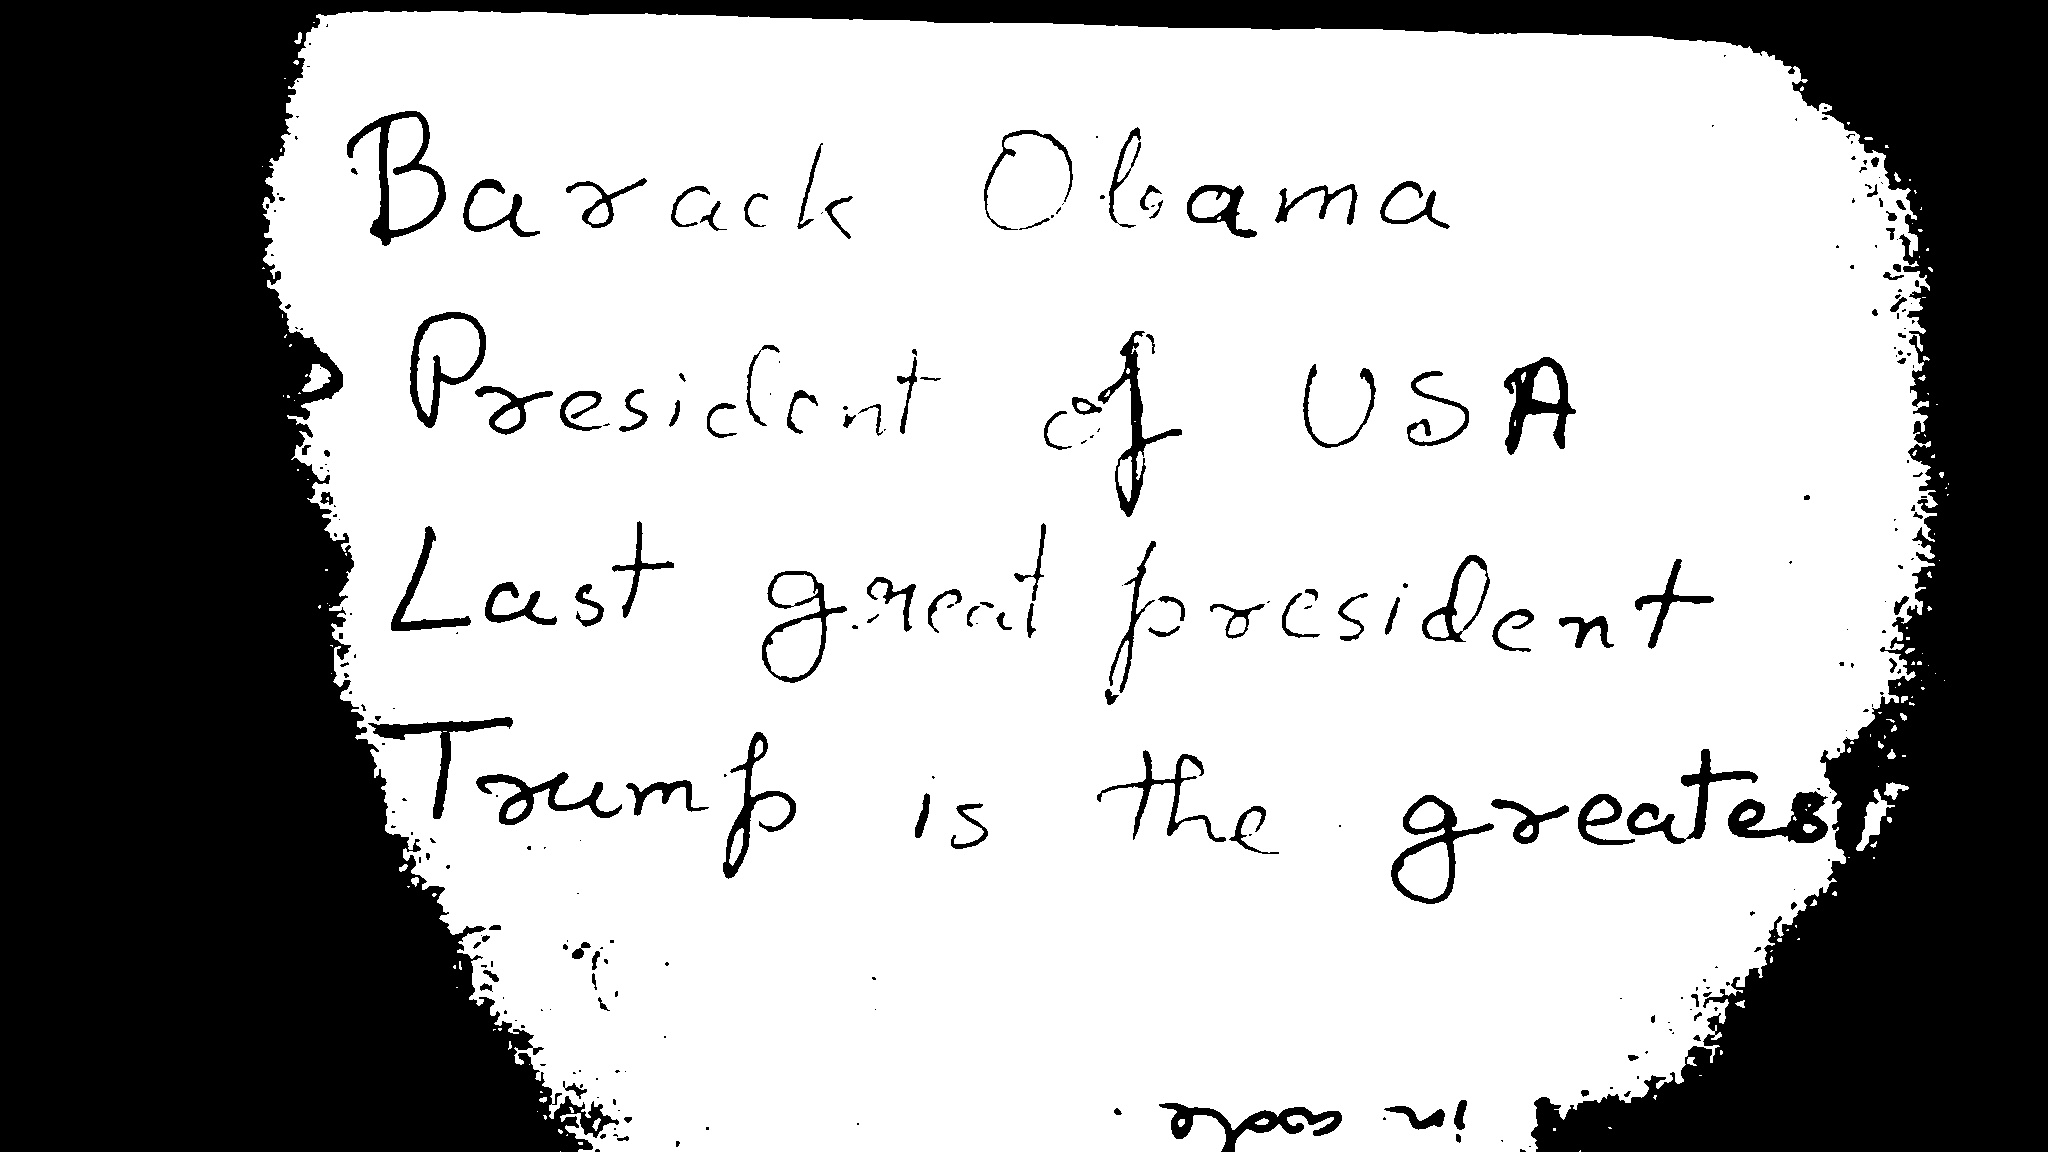 Barack Obama
President of USA
Last great president
Trump is the greatest
in code